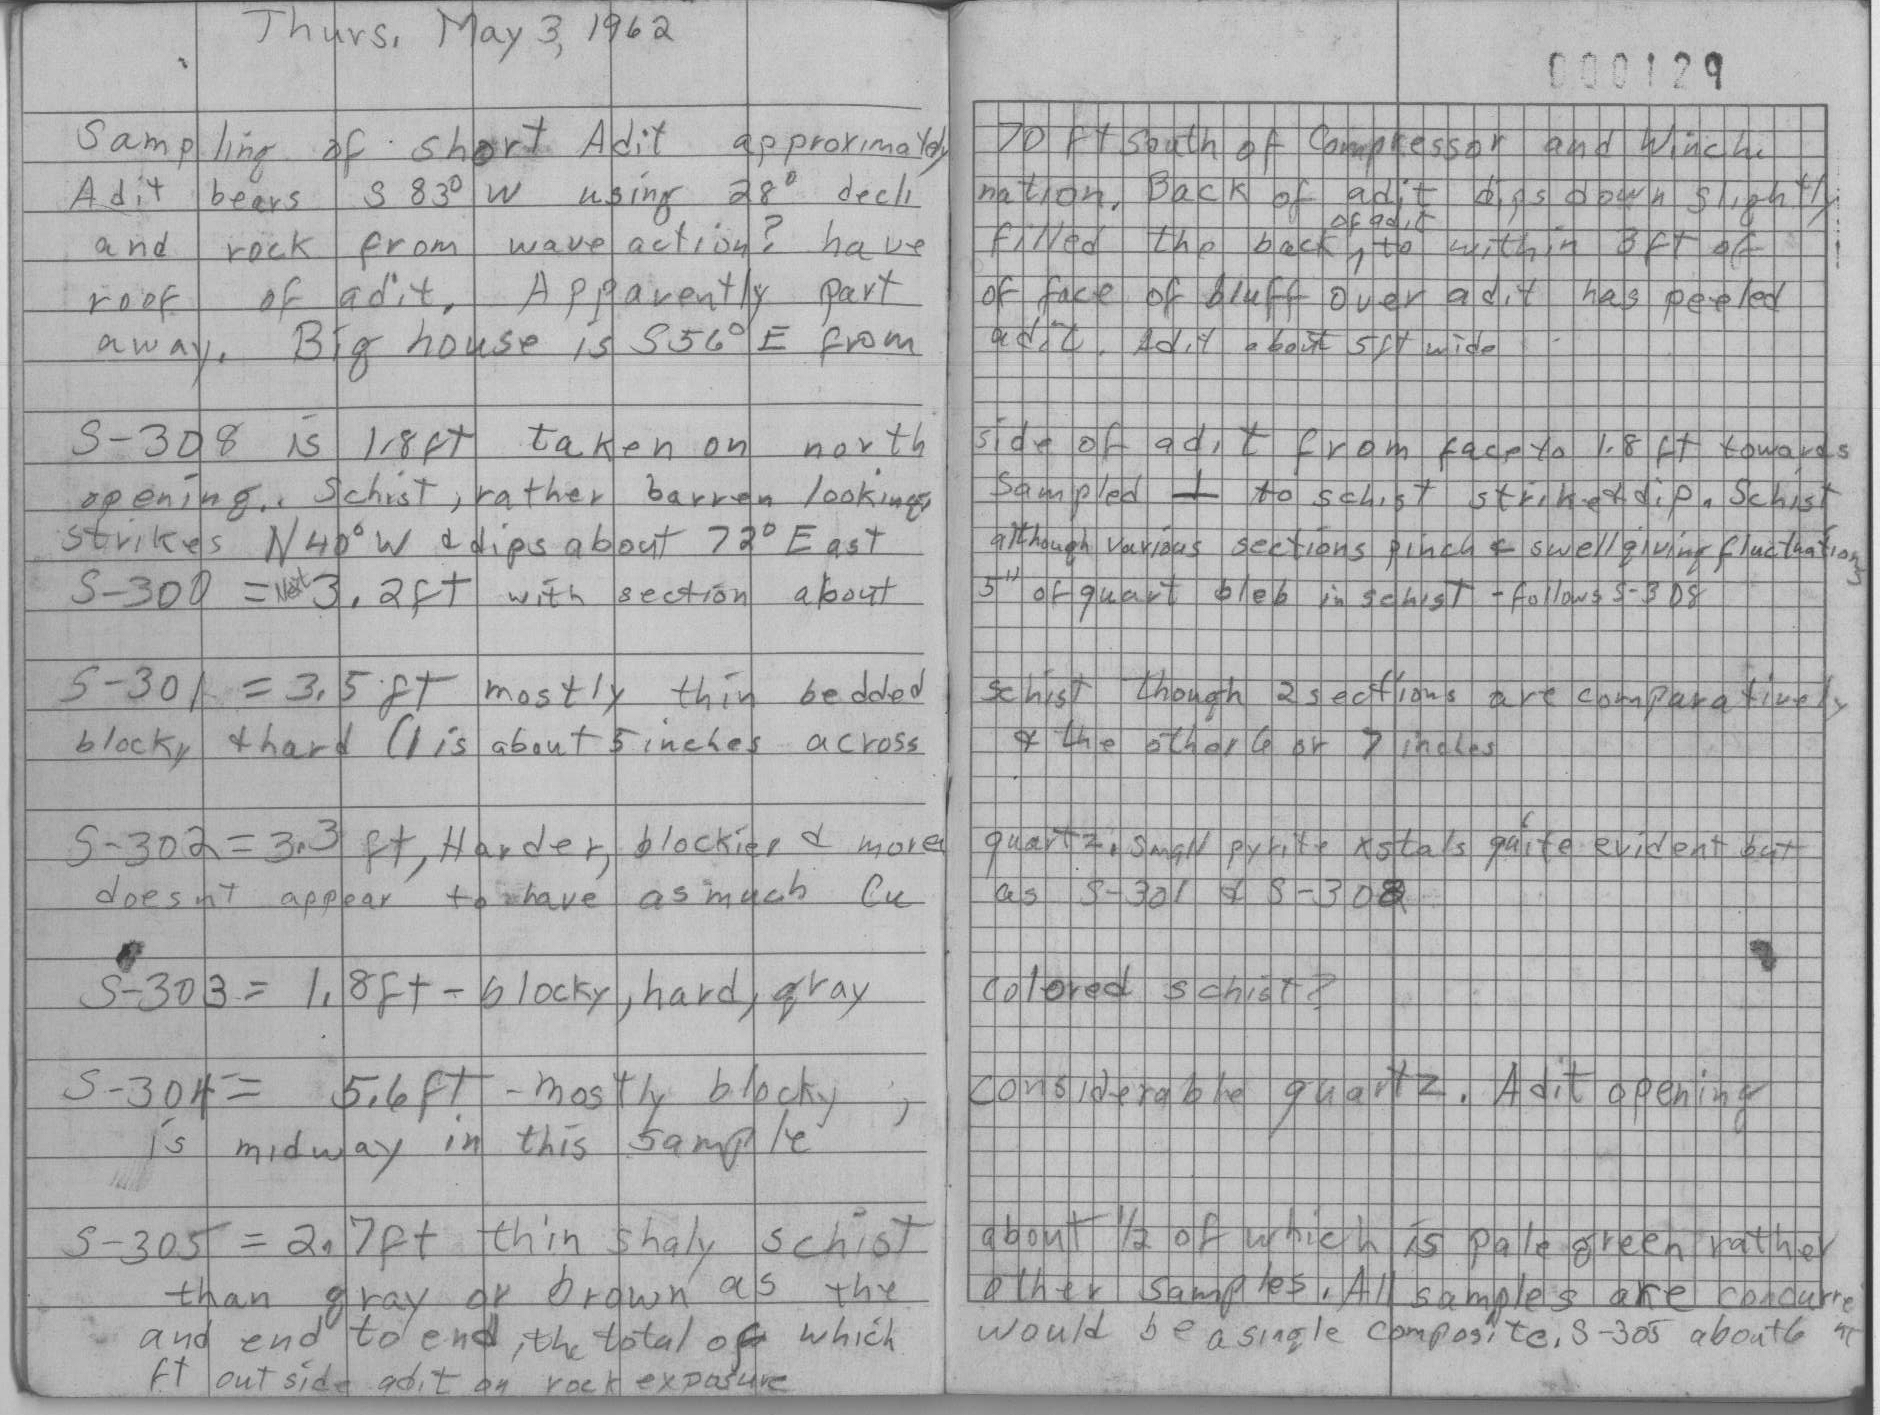 Thurs. May 3, 1962
000129
Sampling of short Adit approximately 70 ft South of Compressor and Winch.
Adit bears S 83° W using 28° decli nation. Back of adit dips down slightly
and rock from wave action? have filled the back of adit to within 3 ft of
roof of adit. Apparently part of face of bluff over adit has peeled
away. Big house is S56° E from adit. Adit about 5 ft wide
S-308 is 1.8 ft taken on north side of adit from face to 1.8 ft towards
opening. Schist, rather barren looking, Sampled ⊥ to schist strike & dip. Schist
strikes N40°W & dips about 72° East although various sections pinch & swell giving fluctuations
S-300 = Next 3.2 ft with section about 5" of quart bleb in schist - follows S-308
S-301 = 3.5 ft mostly thin bedded schist though 2 sections are comparatively
blocky & hard (1 is about 5 inches across & the other 6 or 7 inches
S-302 = 3.3 ft, Harder, blockier & more quartz. Small pyrite xstals quite evident but
doesnt appear to have as much Cu as S-301 & S-308
S-303 = 1.8 ft - blocky, hard, gray colored schist?
S-304 = 5.6 ft - mostly blocky, considerable quartz. Adit opening
is midway in this sample
S-305 = 2.7 ft thin shaly schist about 1/2 of which is pale green rather
than gray or brown as the other samples. All samples are concurre nt
and end to end, the total of which would be a single composite. S-305 about 6
ft outside adit on rock exposure